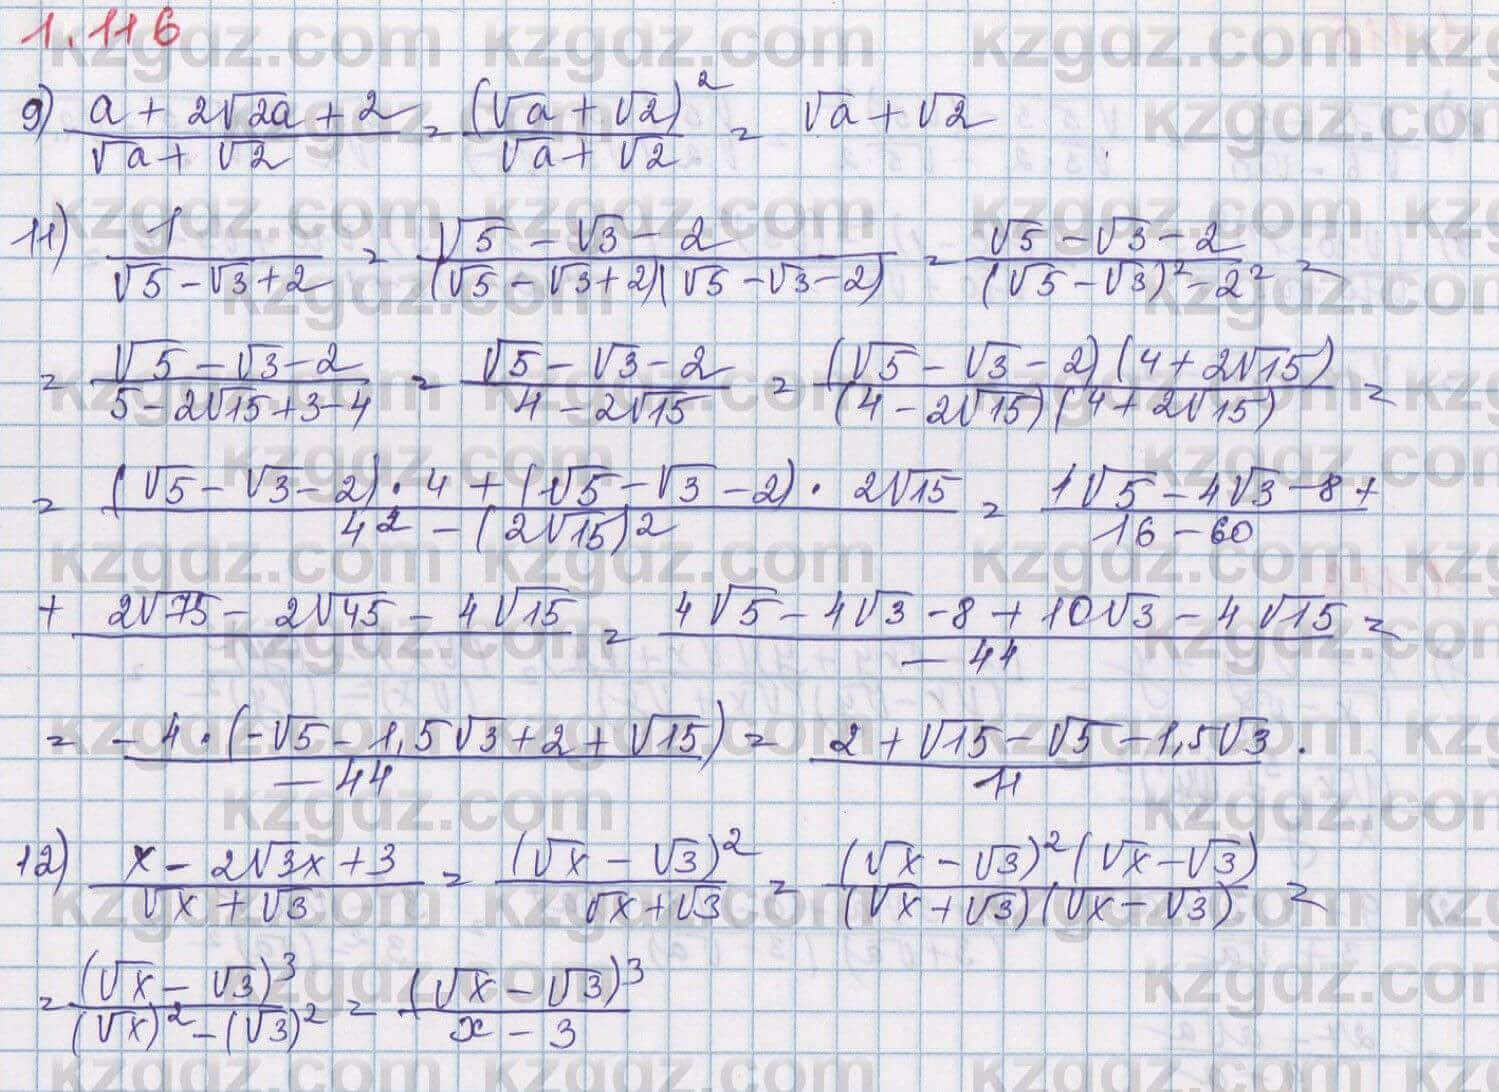 1.116
9) (a + 2√2a + 2)/(√a + √2) = (√a + √2)²/(√a + √2) = √a + √2
11) 1/(√5 - √3 + 2) = (√5 - √3 - 2)/((√5 - √3 + 2)(√5 - √3 - 2)) = (√5 - √3 - 2)/((√5 - √3)² - 2²) =
= (√5 - √3 - 2)/(5 - 2√15 + 3 - 4) = (√5 - √3 - 2)/(4 - 2√15) = ((√5 - √3 - 2)(4 + 2√15))/((4 - 2√15)(4 + 2√15)) =
= ((√5 - √3 - 2)·4 + (√5 - √3 - 2)·2√15)/(4² - (2√15)²) = (4√5 - 4√3 - 8 +)/(16 - 60)
+ 2√75 - 2√45 - 4√15 = (4√5 - 4√3 - 8 + 10√3 - 4√15)/(-44) =
= (-4·(-√5 - 1,5√3 + 2 + √15))/(-44) = (2 + √15 - √5 - 1,5√3)/11.
12) (x - 2√3x + 3)/(√x + √3) = (√x - √3)²/(√x + √3) = ((√x - √3)²(√x - √3))/((√x + √3)(√x - √3)) =
= (√x - √3)³/((√x)² - (√3)²) = (√x - √3)³/(x - 3)
kzgdz.com